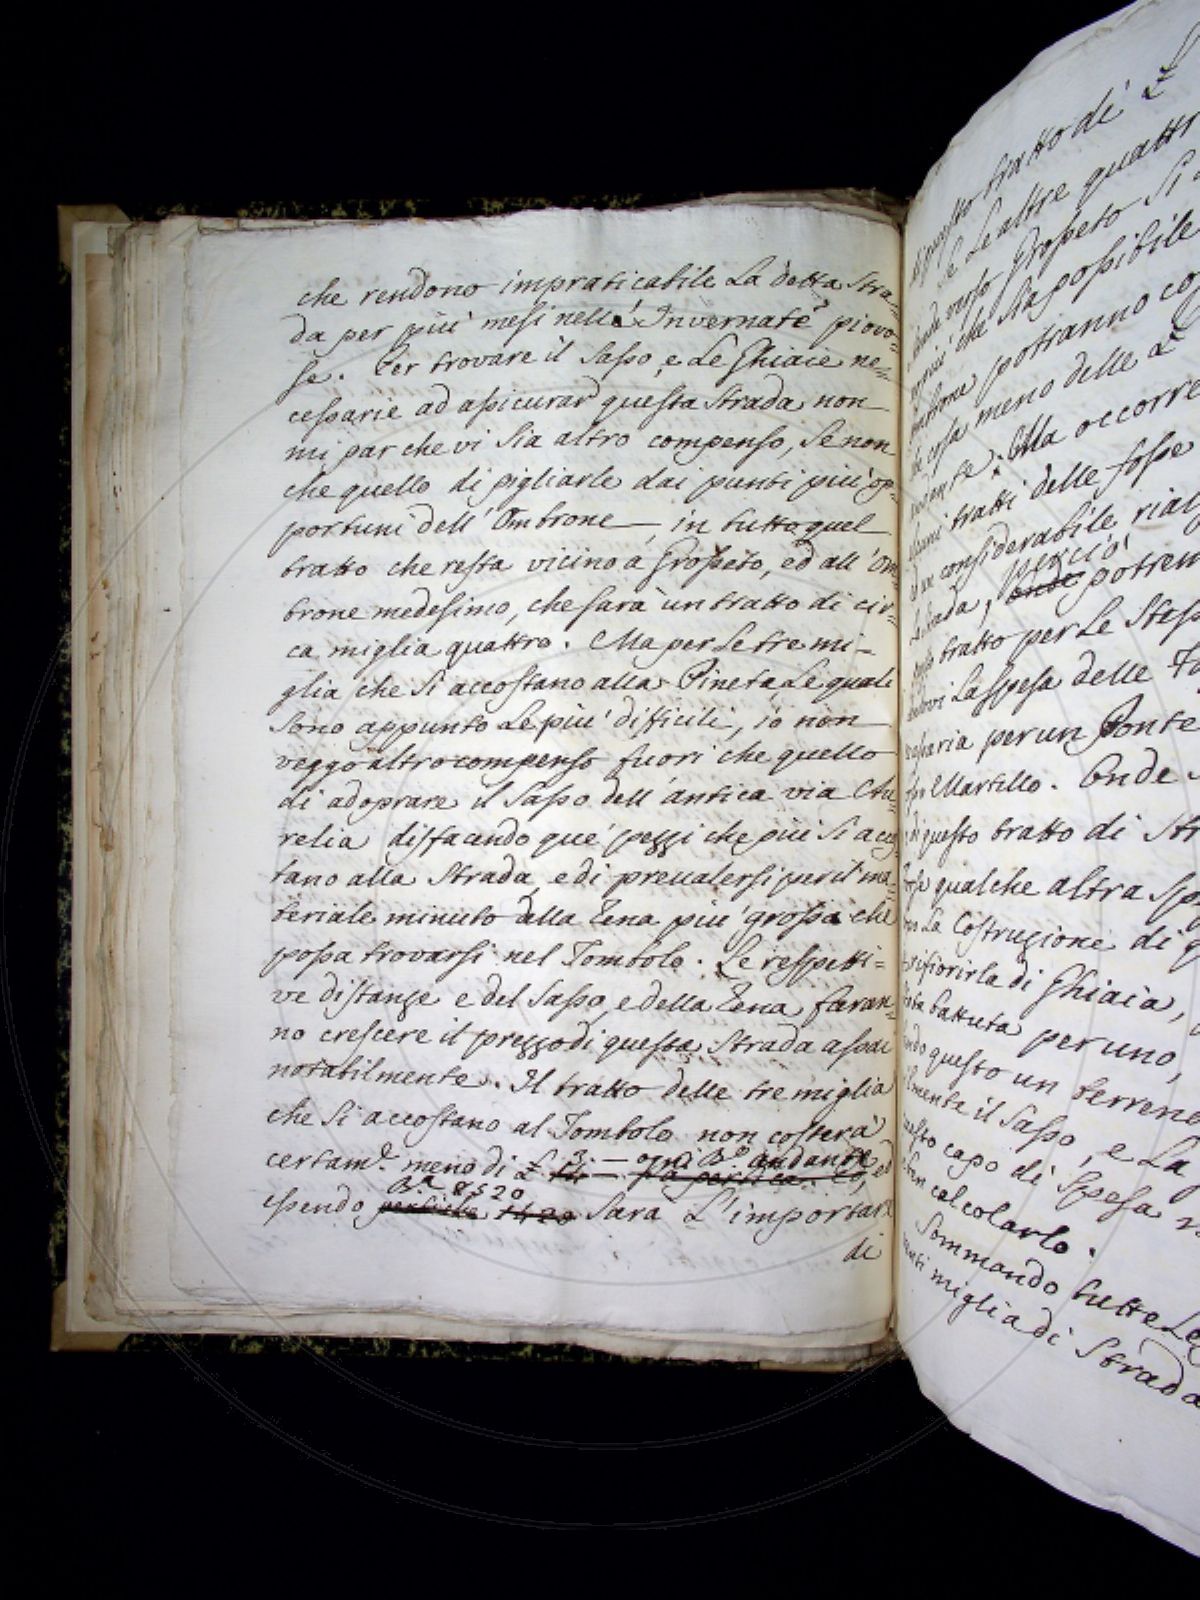 che rendono impraticabile La detta Stra=
da per più mesi nelle Invernate piovo=
se. Per trovare il Sasso, e Le Ghiaie ne=
cessarie ad assicurar questa Strada non
mi par che vi Sia altro compenso, Se non
che quello di pigliarle dai punti più op=
portuni dell'Ombrone in tutto quel
tratto che resta vicino à Grosseto, ed all'Om=
brone medesimo, che sarà un tratto di cir=
ca miglia quattro. Ma per Le tre mi=
glia che Si accostano alla Pineta Le quali
Sono appunto Le più difficili, io non
veggo altro compenso fuori che quello
di adoprare il Sasso dell'antica via Au=
relia disfacendo que' pezzi che più Si acco
tano alla Strada, e di prevalersi per il ma=
teriale minuto della Rena più grossa che
possa trovarsi nel Tombolo. Le respetti=
ve distanze e del Sasso, e della Rena faran=
no crescere il prezzo di questa Strada assai
notabilmente. Il tratto delle tre miglia
che Si accostano al Tombolo non costerà
3 — ogni B.ª andante
certam.e meno di £ la pertica ed
B.ª 8520
essendo pertiche Sarà L'importare
di
questo tratto di £
Se Le altre quattr
verso Grosseto Si
che Sia possibile
potranno
cosa meno delle £
Ma occorre
tratti delle fosse
considerabile
perciò
Strada, onde potrem
tratto per Le Stess
La spesa delle
per un Ponte
Martello. Onde
questo tratto di Str
qualche altra Sp
La Costruzione di
rifiorirla di Ghiaia,
battuta per uno,
questo un terreno
il Sasso, e La
capo di Spesa
calcolarlo.
Sommando tutte Le
miglia di Strada